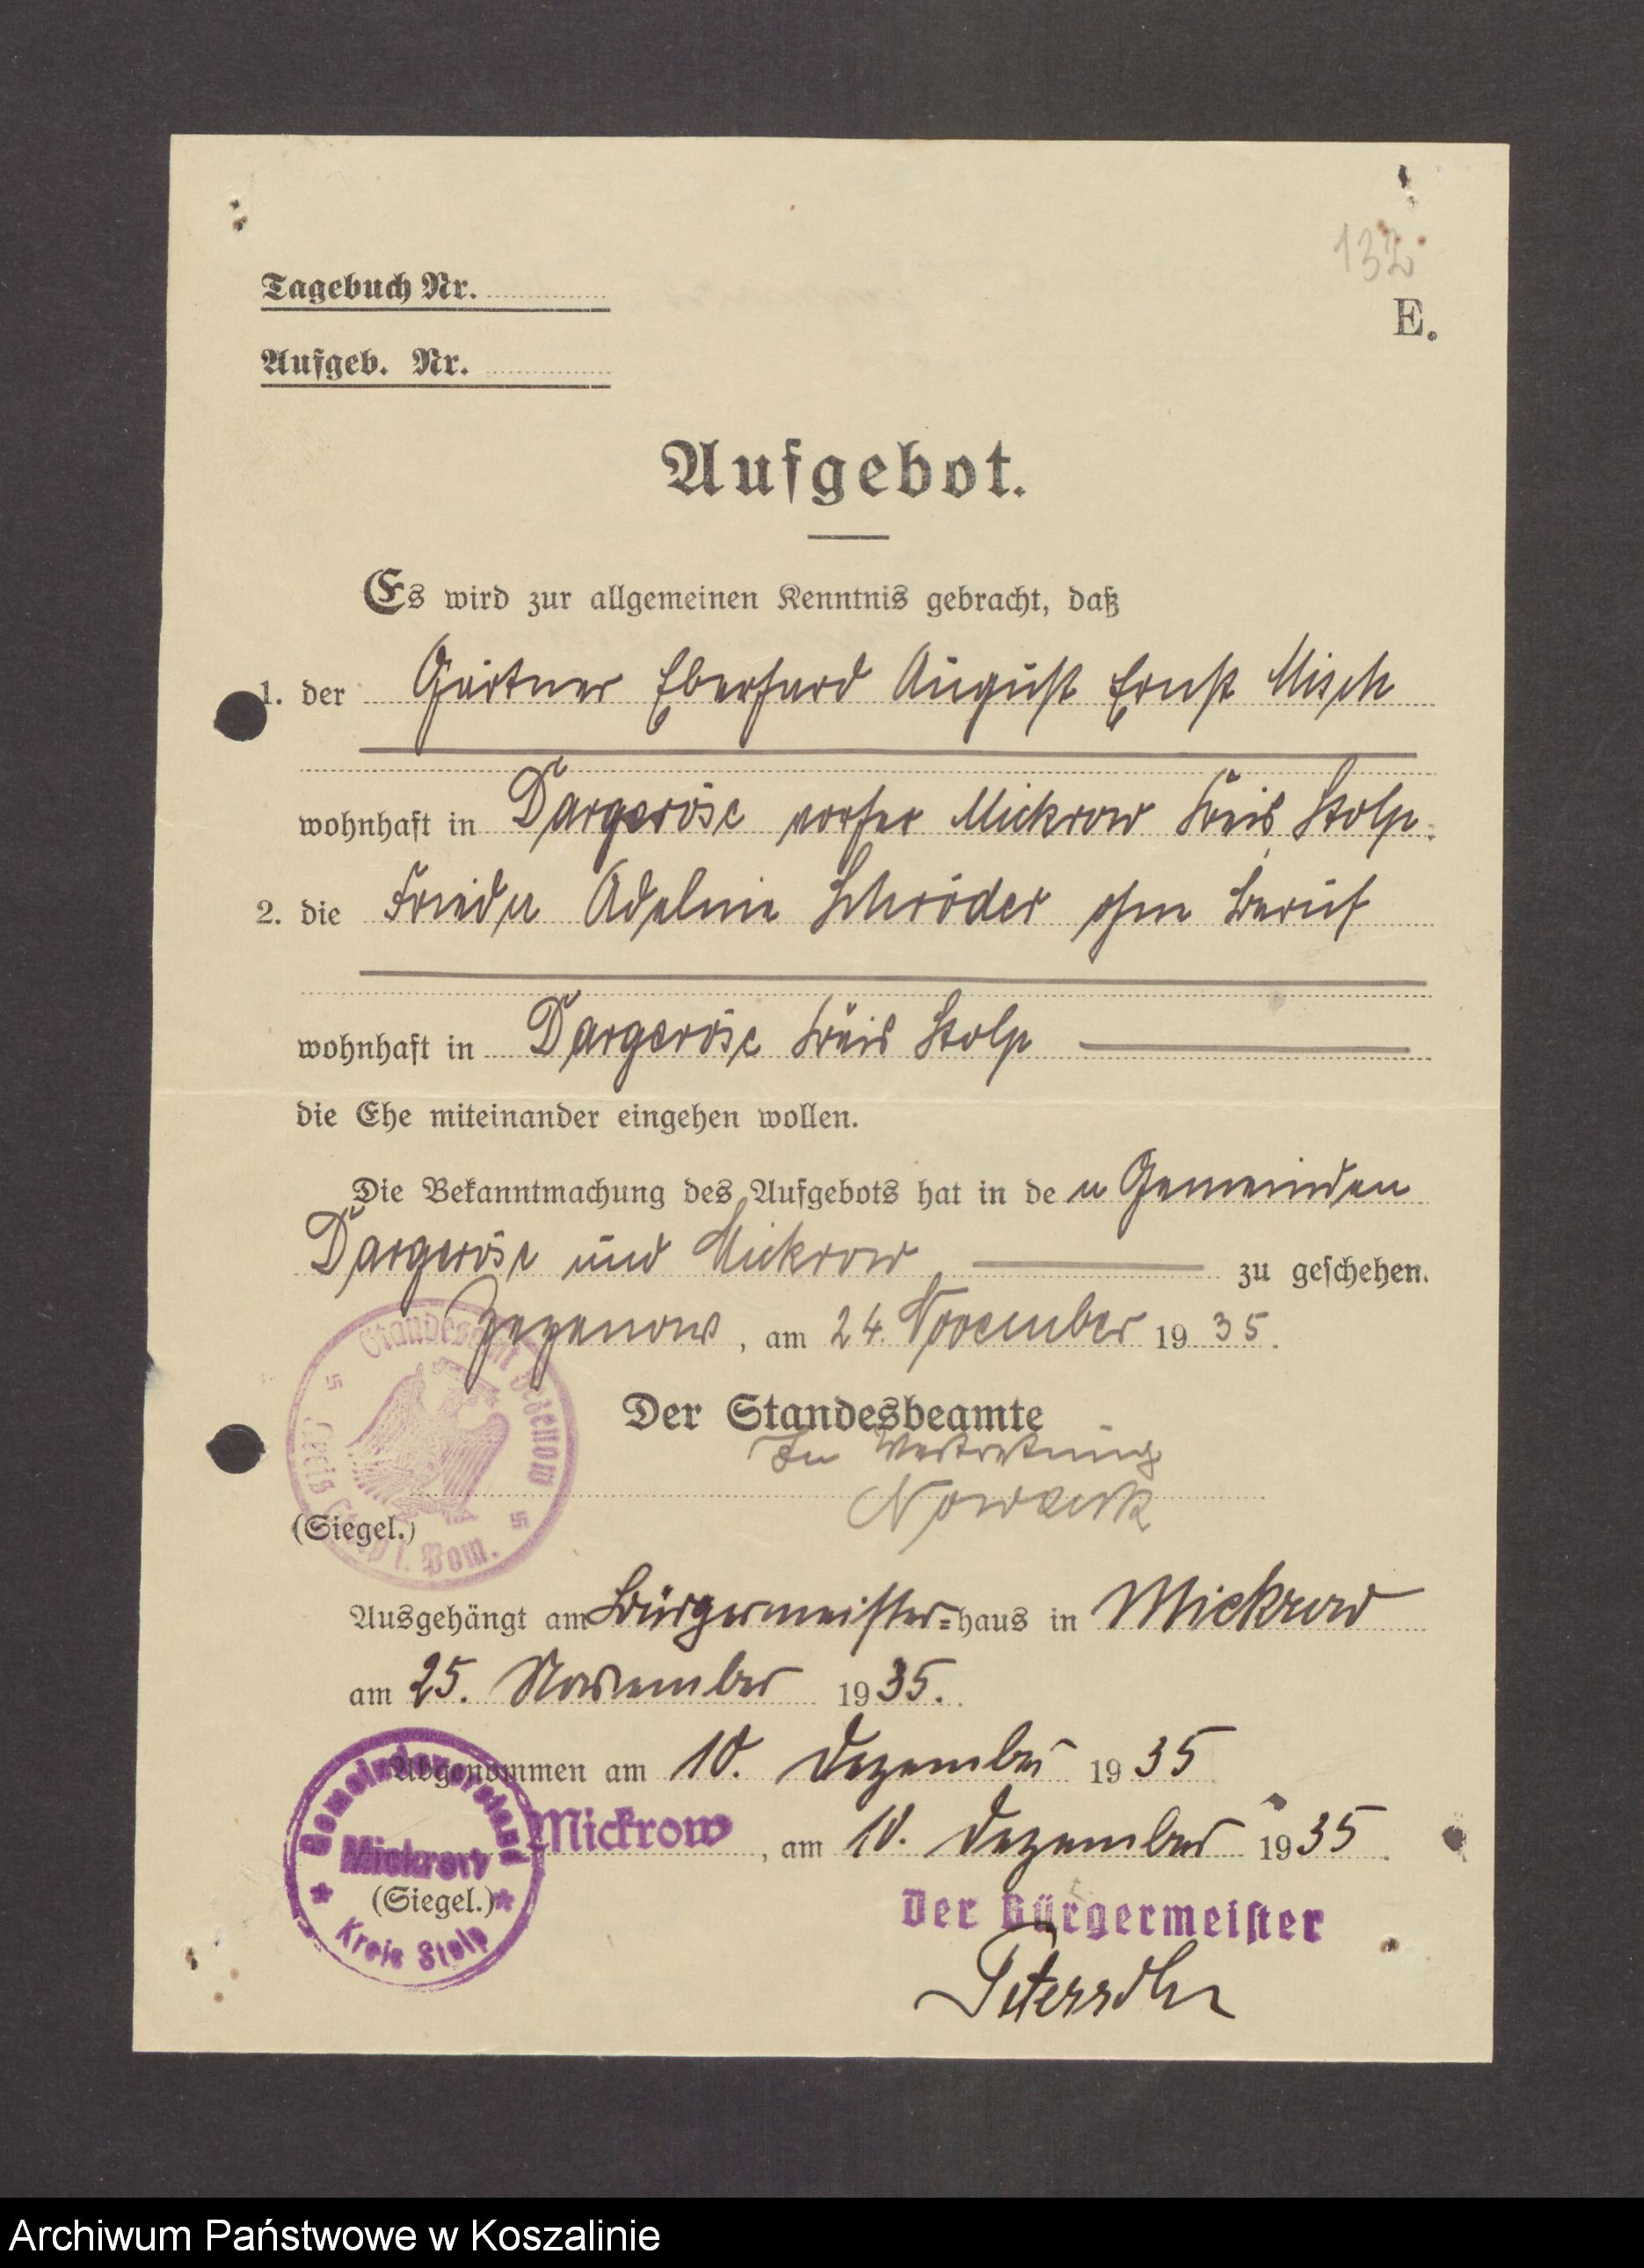 132
E.
Tagebuch Nr.
Aufgeb. Nr.
Aufgebot.
Es wird zur allgemeinen Kenntnis gebracht, daß
1. der Gärtner Eberhard August Ernst Misch
wohnhaft in Dargeröse vorher Mickrow Kreis Stolp.
2. die Frieda Adeline Schröder ohne Beruf
wohnhaft in Dargeröse Kreis Stolp
die Ehe miteinander eingehen wollen.
Die Bekanntmachung des Aufgebots hat in den Gemeinden
Dargeröse und Mickrow zu geschehen.
Zezenow, am 24. November 1935.
Standesamt Zezenow
Kreis Stolp i. Pom.
Der Standesbeamte
In Vertretung
(Siegel.)
Ausgehängt am Bürgermeister=haus in Mickrow
am 25. November 1935.
Abgenommen am 10. Dezember 1935
Mickrow, am 10. Dezember 1935.
Gemeindevorstand
Mickrow
Kreis Stolp
(Siegel.)
Der Bürgermeister
Archiwum Państwowe w Koszalinie